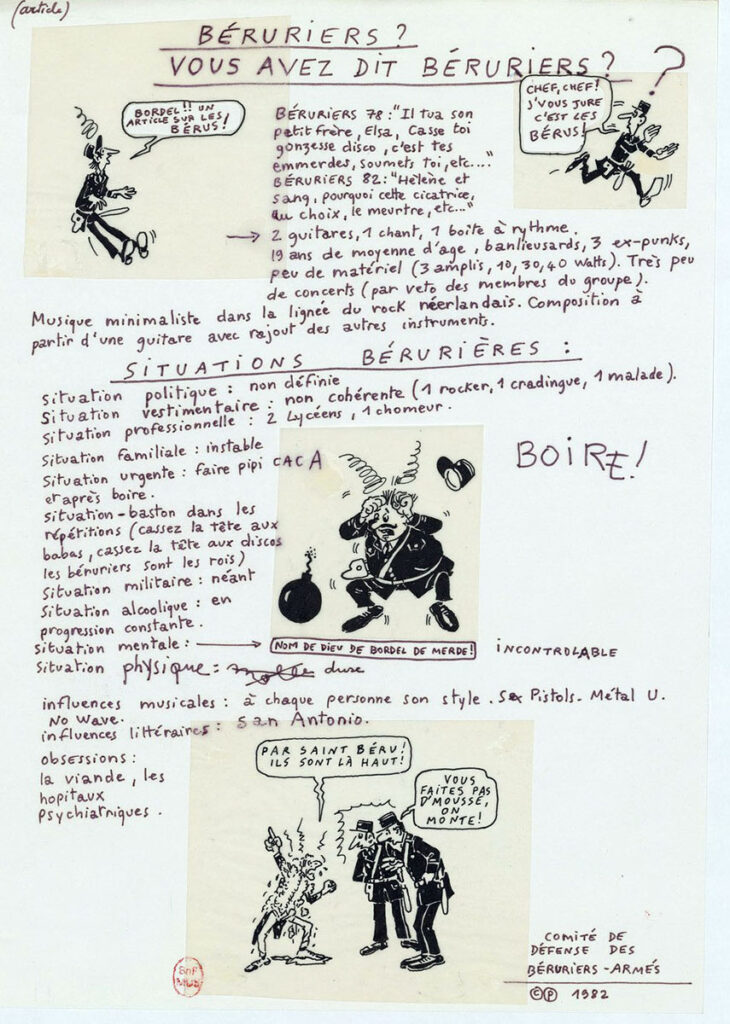 (article)
BÉRURIERS ?
VOUS AVEZ DIT BÉRURIERS ? ?
BORDEL!! UN
ARTICLE SUR LES
BÉRUS!
CHEF, CHEF!
J'VOUS JURE
C'EST LES
BÉRUS!
BÉRURIERS 78 : "Il tua son
petit frère, Elsa, Casse toi
gonzesse disco, c'est tes
emmerdes, soumets toi, etc...."
BÉRURIERS 82 : "Hélène et
sang, pourquoi cette cicatrice,
au choix, le meurtre, etc..."
→ 2 guitares, 1 chant, 1 boite à rythme.
19 ans de moyenne d'age, banlieusards, 3 ex-punks,
peu de matériel (3 amplis, 10, 30, 40 watts). Très peu
de concerts (par veto des membres du groupe).
Musique minimaliste dans la lignée du rock néerlandais. Composition à
partir d'une guitare avec rajout des autres instruments.
SITUATIONS BÉRURIÈRES :
situation politique : non définie
Situation vestimentaire : non cohérente (1 rocker, 1 cradingue, 1 malade).
Situation professionnelle : 2 Lycéens, 1 chomeur.
Situation familiale : instable
Situation urgente : faire pipi CACA
et après boire.
BOIRE!
situation-baston dans les
répétitions (cassez la tête aux
babas, cassez la tête aux discos
les béruriers sont les rois)
Situation militaire : néant
Situation alcoolique : en
progression constante.
situation mentale : →
NOM DE DIEU DE BORDEL DE MERDE!
INCONTROLABLE
Situation physique : molle dure
influences musicales : à chaque personne son style. Sex Pistols. Métal U.
No Wave.
influences littéraires : San Antonio.
obsessions :
la viande, les
hopitaux
psychiatriques.
PAR SAINT BÉRU!
ILS SONT LÀ HAUT!
VOUS
FAITES PAS
D'MOUSSE,
ON
MONTE!
COMITÉ DE
DÉFENSE DES
BÉRURIERS-ARMÉS
©℗ 1982
BnF
MUS